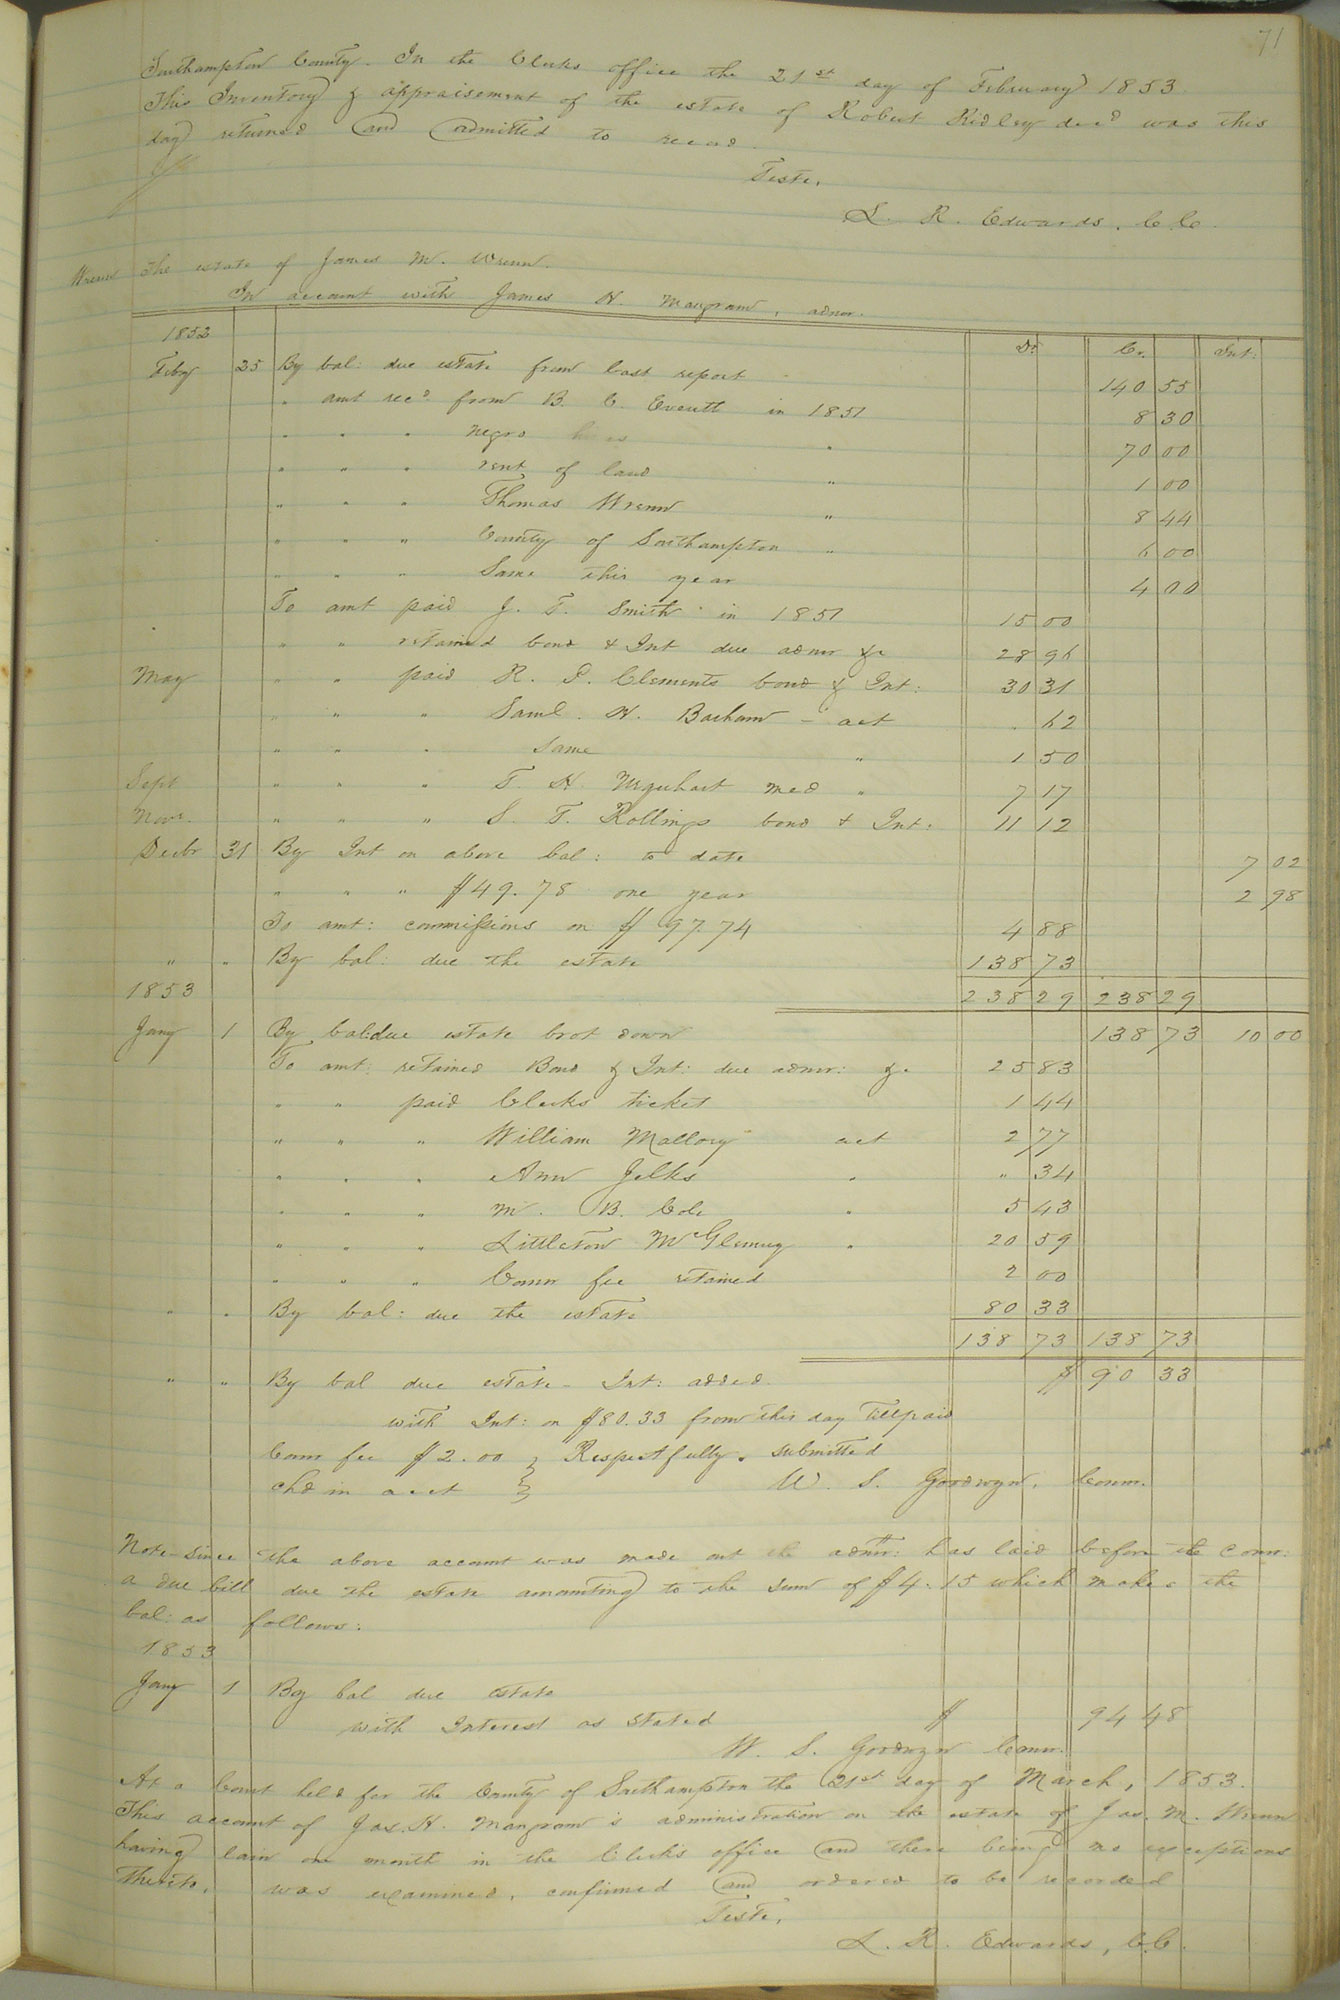 71
Southampton County. In the Clerks office the 21st day of February 1853.
This Inventory & appraisement of the estate of Robert Ridley decd was this
day returned and admitted to record.
Teste,
L. R. Edwards, C.C.
Wrenn The estate of James M. Wrenn.
In account with James H. Mangram, admr.
1852 Dr. Cr. Int:
Feby 25 By bal: due estate from last report 140 55
" amt recd from B. C. Everett in 1851 8 30
" " " negro hires " 70 00
" " " rent of land " 1 00
" " " Thomas Wrenn " 8 44
" " " County of Southampton " 6 00
" " " Same this year 4 00
To amt paid J. T. Smith in 1851 15 00
" " retained bond & Int due admr &c 28 96
May " " paid R. P. Clements bond & Int: 30 31
" " " Saml. H. Barham - act . 62
" " " Same " 1 50
Sept " " " T. H. Urquhart med " 7 17
Novr. " " " S. T. Rollings bond & Int: 11 12
Decbr 31 By Int on above bal: to date 7 02
" " " $49.78 one year 2 98
To amt: commissions on $97.74 4 88
" " By bal: due the estate 138 73
238 29 238 29
1853
Jany 1 By bal: due estate brot down 138 73 10 00
To amt: retained Bond & Int: due admr: &c 25 83
" " paid Clerks ticket 1 44
" " " William Mallory act 2 77
" " " Ann Jelks " " 34
" " " M. B. Cole " 5 43
" " " Littleton " 20 59
" " " Comr fee retained 2 00
" " By bal: due the estate 80 33
138 73 138 73
" " By bal due estate - Int: added $ 90 33
with Int: on $80.33 from this day till paid
Comr fee $2.00 } Respectfully submitted
chd in acct } W. S. Goodwyn, Comr.
Note - since the above account was made out the admr: has laid before the comr:
a due bill due the estate amounting to the sum of $4.15 which makes the
bal: as follows:
1853
Jany 1 By bal due estate
with Interest as stated $ 94 48
W. S. Goodwyn Comr.
At a Court held for the County of Southampton the 21st day of March, 1853.
This account of Jas. H. Mangram's administration on the estate of Jas. M. Wrenn
having lain one month in the Clerks office and there being no exceptions
thereto, was examined, confirmed and ordered to be recorded
Teste,
L. R. Edwards, C.C.